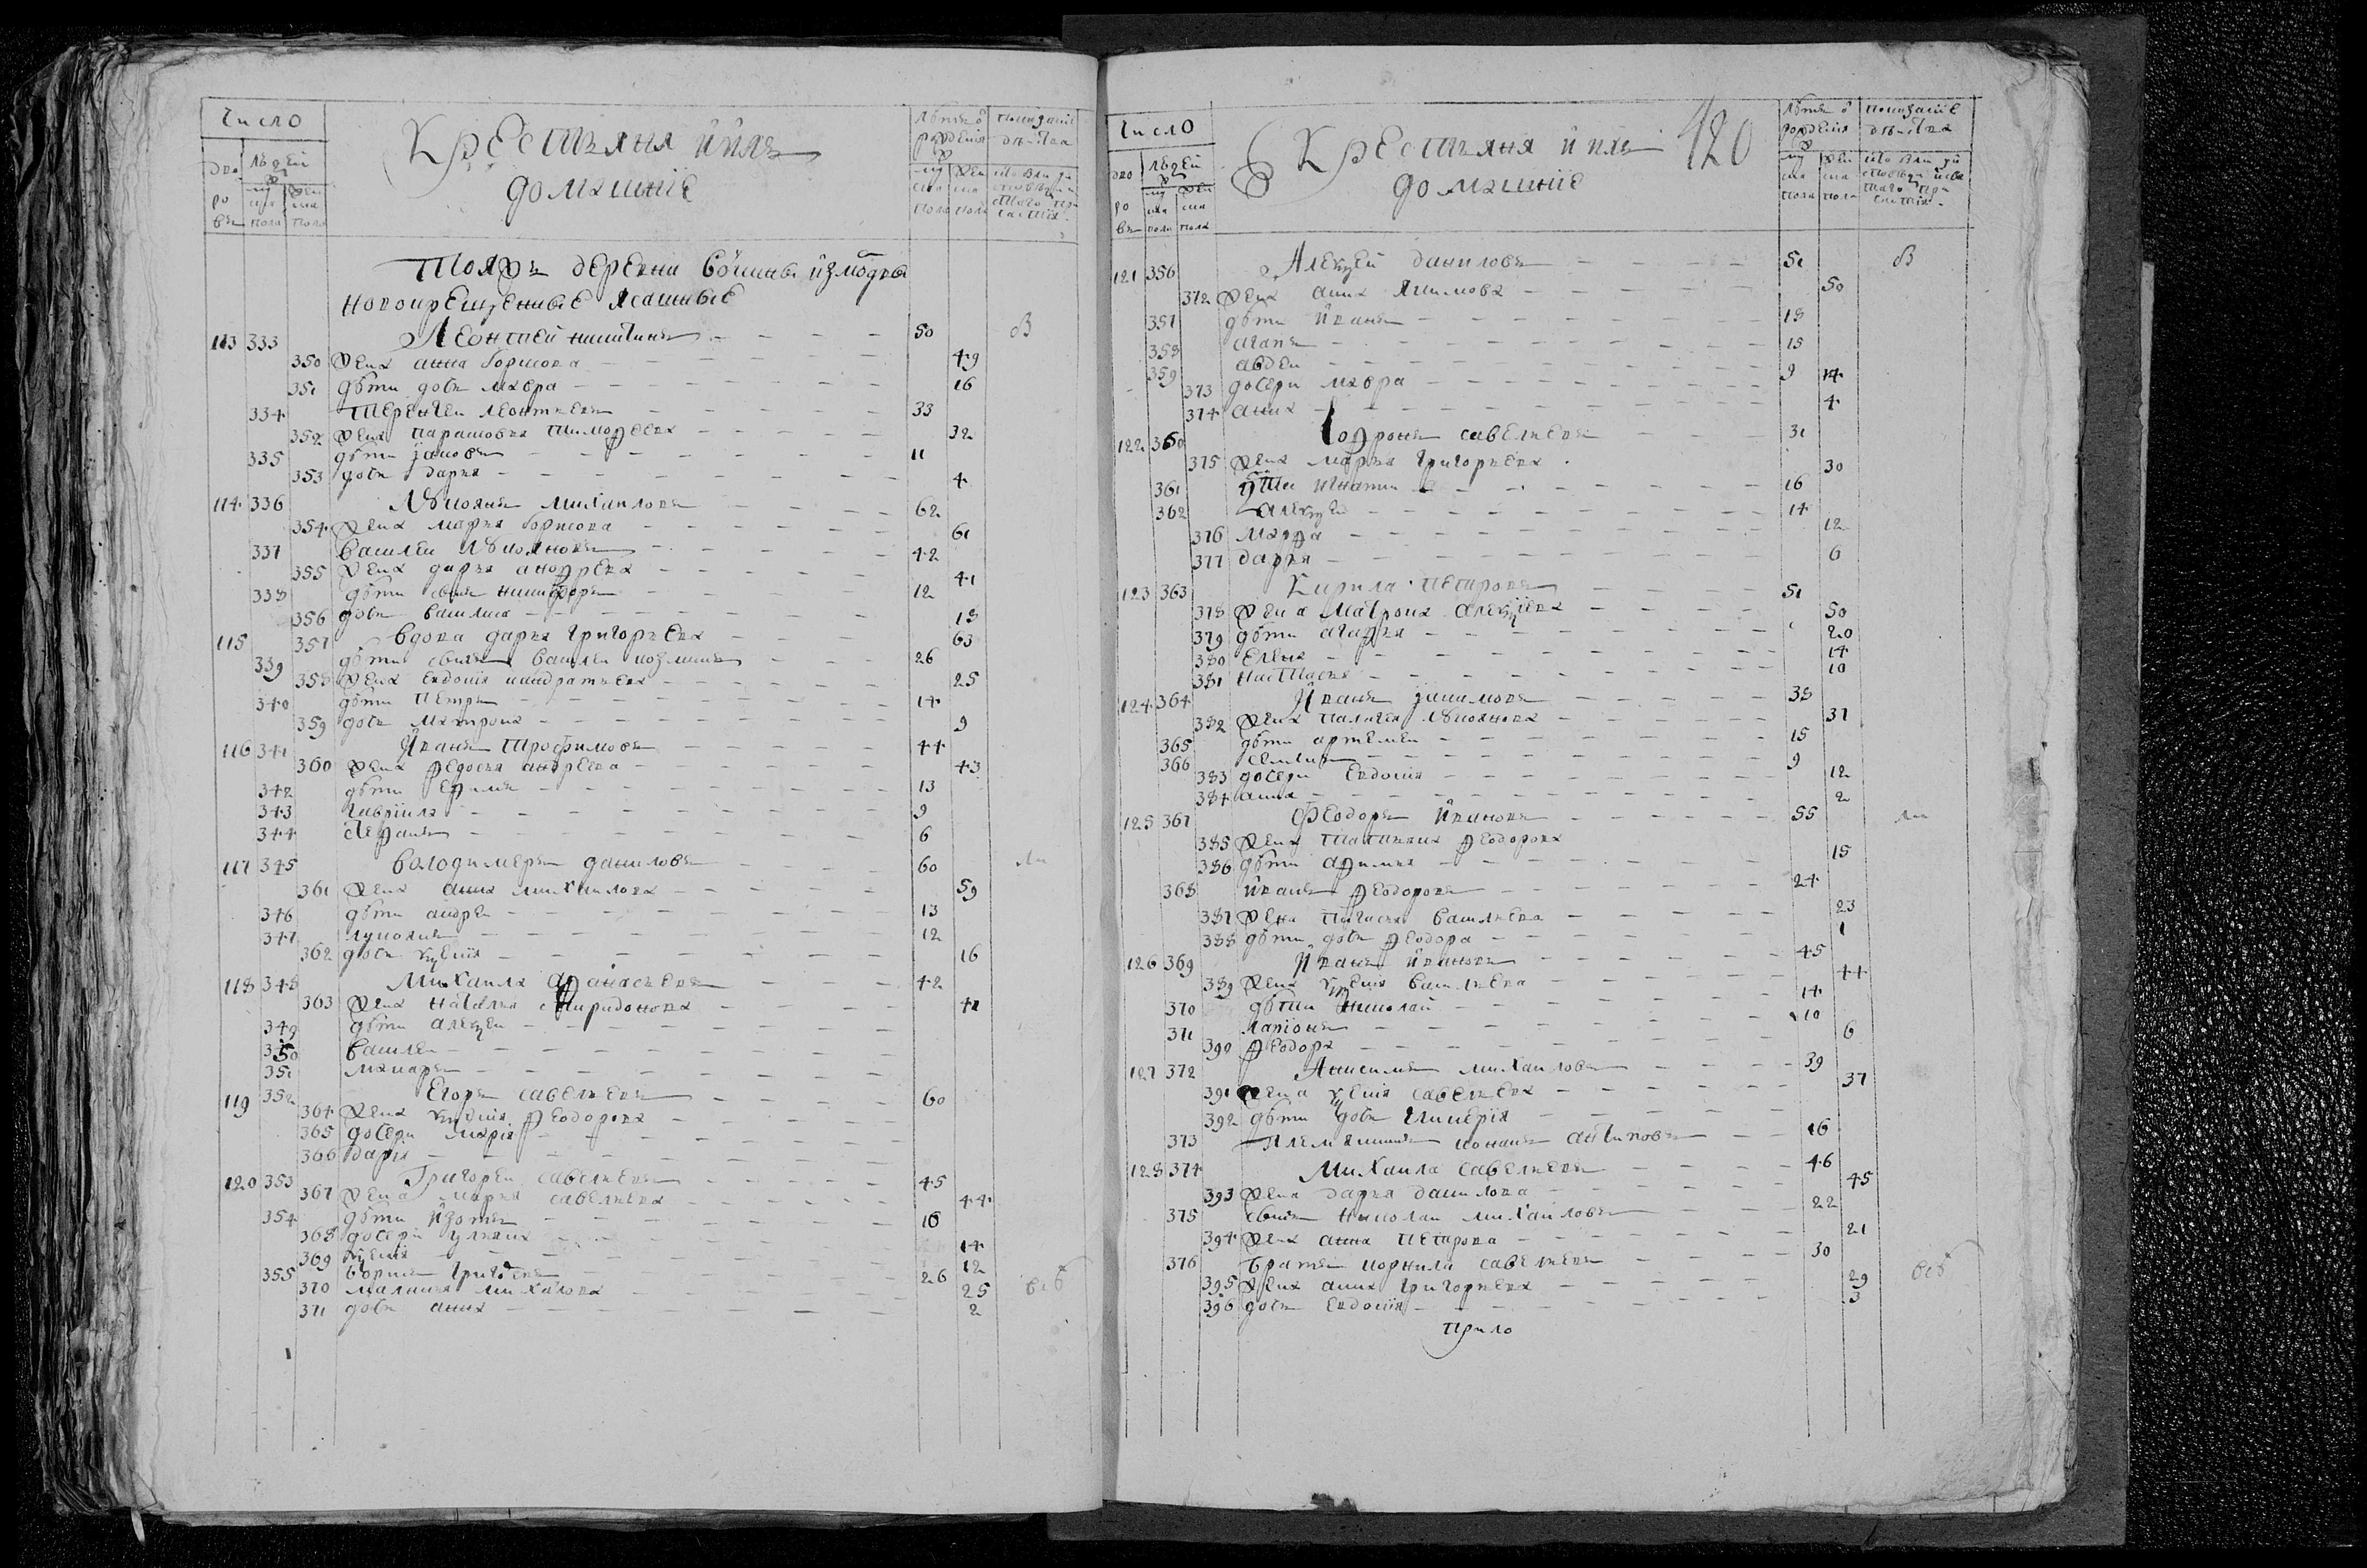 Число
Крестьяня и ихъ
домашнїе
дво
ро
въ
людей
муж
ска
пола
жен
ска
пола
Лѣтъ ѿ
рожденїя
муж
ска
пола
жен
ска
пола
показанїе
действа
Тояжъ деревни
новокрещенные ясашные
113 333 Леонтей никитинъ 50 В
350 жена анна борисова 49
351 дѣти дочь мавра 16
334 Терентеи леонтьевъ 33
352 жена парасковья тимофеева 32
335 дѣти iаковъ 11
353 дочь дарья 4
114 336 Лукоянъ михаиловъ 62
354 жена марья борисова 61
337 василеи лукояновъ 42
355 жена дарья андреева 41
338 дѣти сынъ никифоръ 12
356 дочь василиса 18
115 357 вдова дарья григорьева 63
339 дѣти сынъ василеи козминъ 26
358 жена евдокия кандратьева 25
340 дѣти петръ 14
359 дочь матрона 9
116 341 Иванъ трофимовъ 44
360 жена федосья андреева 43
342 дѣти ефимъ 13
343 гаврїила 9
344 стефанъ 6
117 345 володимеръ даниловъ 60
361 жена анна михаилова 59
346 дѣти андреи 13
347 лукоянъ 12
362 дочь ксенїя 16
118 348 Михаила афанасьевъ 42
363 жена наталья спиридонова 41
349 дѣти алексеи
350 василеи
351 макаръ
119 352 Егоръ савельевъ 60
364 жена ксенїя феодорова
365 дочери марїя
366 дарья
120 353 Григореи савельевъ 45
367 жена марья савельева 44
354 дѣти изотъ 10
368 дочери ульяна 14
369 ксенїя 12
355 борисъ григорьевъ 26
370 маланья михаилова 25
371 дочь анна 2
Число
Крестьяня и ихъ 120
домашнїе
дво
ро
въ
людей
муж
ска
пола
жен
ска
пола
Лѣтъ ѿ
рожденїя
муж
ска
пола
жен
ска
пола
показанїе
действа
121 356 Алексей даниловъ 51 В
372 жена анна якимова 50
357 дѣти иванъ 18
358 агапъ 15
359 авдеи 9
373 дочери мавра 14
374 анна 4
122 360 софронъ савельевъ 31
375 жена марья григорьева 30
361 дѣти игнатии 16
362 алексеи 14
376 марфа 12
377 дарья 6
123 363 Кирила петровъ 51
378 жена матрона алексїева 50
379 дѣти агафья 20
380 елена 14
381 настасья 10
124 364 Иванъ iакимовъ 38
382 жена палагея лукоянова 37
365 дѣти артемеи 15
366 семионъ 9
383 дочери евдокия 12
384 анна 2
125 367 Феодоръ ивановъ 55
385 жена татьяна феодорова
386 дѣти афимья 15
368 иванъ феодоровъ 24
387 жена пигасья васильева 23
388 дѣти дочь феодора 1
126 369 Иванъ ивановъ 45
389 жена ксенїя васильева 44
370 дѣти николай 14
371 ларїонъ 10
390 феодора 6
127 372 Анисимъ михаиловъ 39
391 жена ксенїя савельева 37
392 дѣти дочь гликерїя
373 племянникъ конанъ антиповъ 16
128 374 Михаила савельевъ 46
393 жена дарья данилова 45
375 сынъ николаи михаиловъ 22
394 жена анна петрова 21
376 братъ корнила савельевъ 30
395 жена анна григорьева 29
396 дочь евдокїя 3